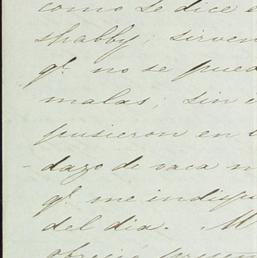 como se dice e
shabby; sirven
qe. no se pued
malas; sin e
pusieron en l
dazo de vaca m
qe. me indispu
del dia. M